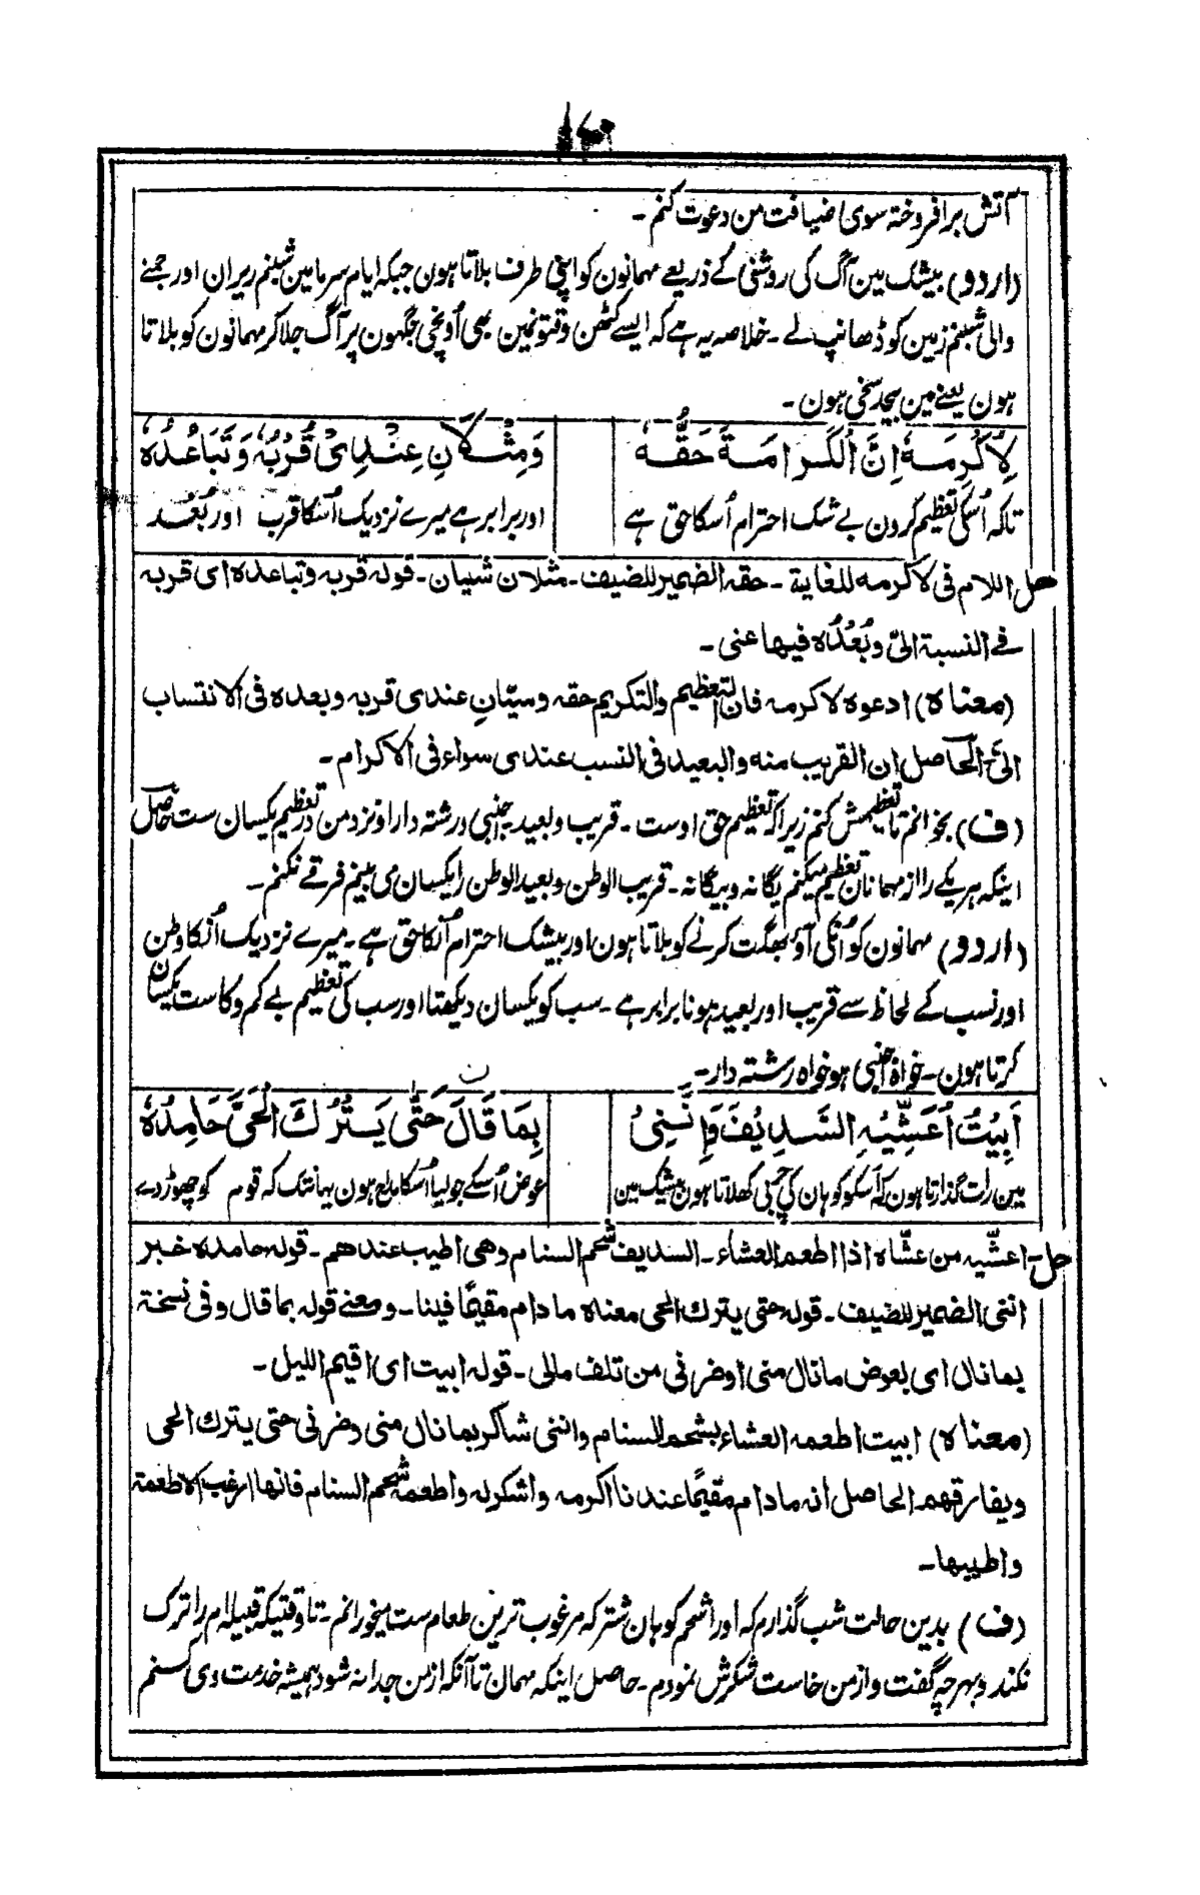 ۱۷۰
آتش برافروختہ سوی اضیافت من دعوت کنم -
(اردو) بیشک مین آگ کی روشنی کے ذریعے مہمانون کو اپنی طرف بلاتا ہون جبکہ ایام سرما مین شبنم ریزان اور جمنے
والی شبنم زمین کو ڈھانپ لے - خلاصہ یہ ہے کہ ایسے کٹھن وقتونمین بھی اُونچی جگہون پر آگ جلا کر مہمانون کو بلاتا
ہون یعنے مین بیحد سخی ہون -
لِاُکْرِمَہٗ اِنَّ الْکَرَامَۃَ حَقُّہٗ وَمِثْلَانِ عِنْدِیْ قُرْبُہٗ وَتَبَاعُدُہٗ
تاکہ اُسکی تعظیم کرون بے شک احترام اُسکا حق ہے اور برابر ہے میرے نزدیک اُسکا قرب اور بُعْد
حل اللام فی لاکرمہ للغایۃ - حقہ الضمیر للضیف - مثلان شبیان - قولہ قربہ وتباعدہ ای قربہ
فے النسبۃ الیّ وبُعْدُہ فیہا عنی -
(معناہ) ادعوہ لاکرمہ فان التعظیم والتکریم حقہ وسیّانِ عندی قربہ وبعدہ فی الانتساب
الیّ - الحاصل ان القریب منہ والبعید فی النسب عندی سواء فی الاکرام -
(ف) بخوانم تا تعظیمش کنم زیرا کہ تعظیم حق اوست - قریب و بعید یعنی جنبی و رشتہ دار او نزد من در تعظیم یکسان ست حاصل
اینکہ ہر یکے را از مہمانان تعظیم میکنم یگانہ و بیگانہ - قریب الوطن و بعید الوطن را یکسان می بینم فرقے نکنم -
(اردو) مہمانون کو اُنکی آؤ بھگت کرنے کو بلاتا ہون اور بیشک احترام اُنکا حق ہے - میرے نزدیک اُنکا وطن
اور نسب کے لحاظ سے قریب اور بعید ہونا برابر ہے - سب کو یکسان دیکھتا اور سب کی تعظیم بے کم وکاست یکسان
کرتا ہون - خواہ جنبی ہو خواہ رشتہ دار -
اَبِیْتُ اُعَشِّیْہِ السَّدِیْفَ وَاِنَّنِیْ بِمَا قَالَ حَتّٰی یَتْرُکَ الْحَیَّ حَامِدُہٗ
ن
مین رات گذارتا ہون کہ اُسکو کوہان کی چربی کھلاتا ہون بیشک مین عوض اُسکے جو لیا اُسکا مادح ہون یہانتک کہ قوم کو چھوڑدے
حل - اعشّیہ من عشّاہ اذا اطعم العشاء - السدیف شحم السنام وھی اطیب عندھم - قولہ حامدہ خبر
اننی الضمیر للضیف - قولہ حتی یترک الحی معناہ ما دام مقیمًا فینا - ومعنے قولہ بما قال وفی نسخۃ
بما نال ای بعوض ما نال منی او ضرنی من تلف مالی - قولہ ابیت ای اقیم اللیل -
(معناہ) ابیت اطعمہ العشاء بشحم السنام واننی شاکر بما نال منی وضرنی حتی یترک الحی
ویفارقھم الحاصل انہ ما دام مقیمًا عندنا اکرمہ واشکرلہ واطعمہ شحم السنام فانھا ارغب الاطعمۃ
واطیبہا -
(ف) بدین حالت شب گذارم کہ اورا شحم کوہان شتر کہ مرغوب ترین طعام ست میخورانم - تا وقتیکہ قبیلہ ام را ترک
نکند و بہر چہ گفت و از من خاست شکرش نمودم - حاصل اینکہ مہمان تا آنکہ از من جدا نہ شود ہمیشہ خدمت وی کنم